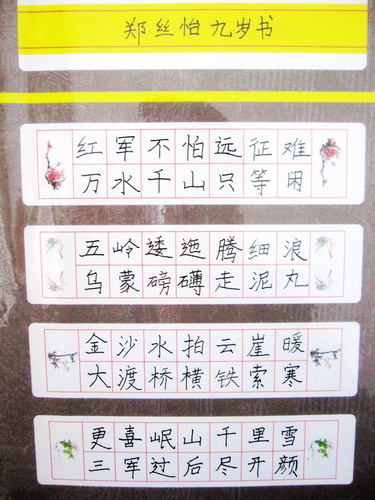 郑丝怡九岁书
红军不怕远征难
万水千山只等闲
五岭逶迤腾细浪
乌蒙磅礴走泥丸
金沙水拍云崖暖
大渡桥横铁索寒
更喜岷山千里雪
三军过后尽开颜